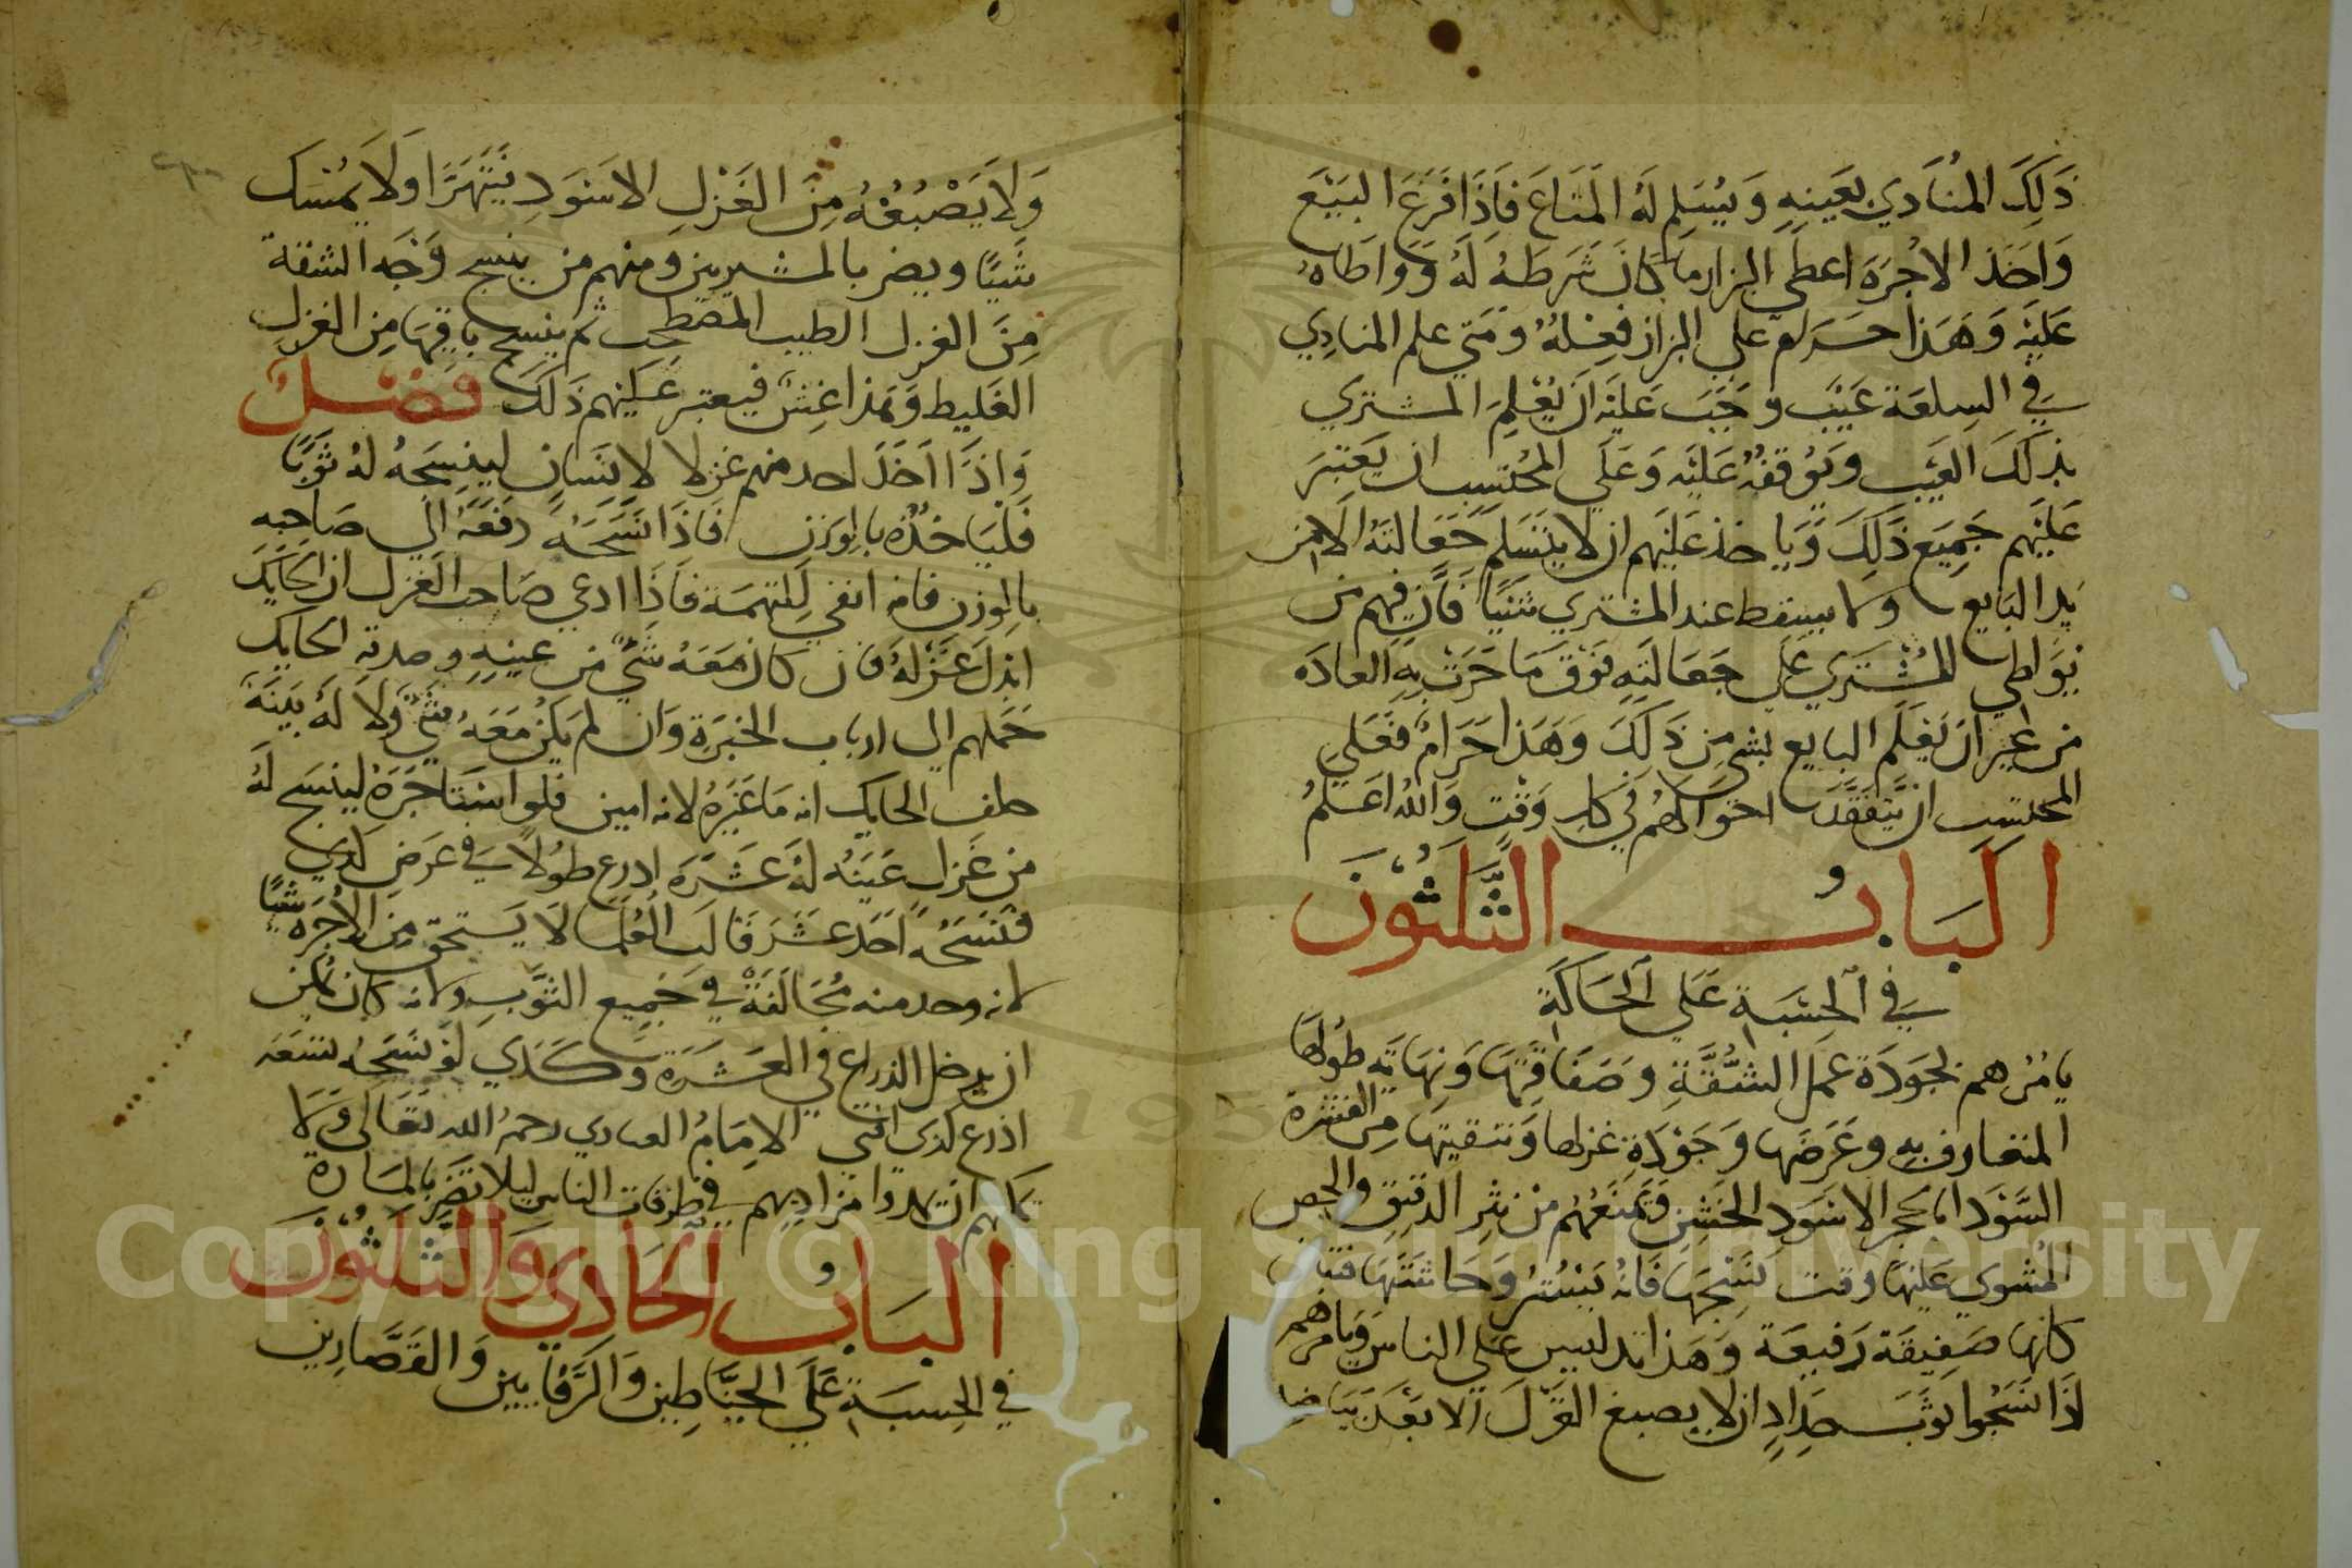 ذَلِكَ المُنَادَي بعَينهِ وَيُسَلِم لَهُ المَتَاعَ فَاِذَا فَرَغَ البَيْعَ
وَاخَذ الاجُرَة اعطي البزار ما كَانَ شَرَطَهُ لَهُ وَوَاطَاهُ
عَليْه وَهَذا حَرام علي البزاز فِعْلهُ وَمَتي علم المنادِي
في السِلعَة عَيْب وجَبَ عَليْه اَنْ يُعْلِمَ المشتري
بذلكَ العَيْب ويَوُقفهُ عَليْه وَعَلَي المُحْتسِب ان يَعتبرَ
عَليْهم جَمِيَع ذَلِكَ وَيَاخذ عَليْهم ان لا يتسَلم جَعَالتهُ الا من
يَد البَايع ولا يسقط عند المشتري شيْيًا فَان فيهم من
يُوَاطي المُشْترَي عَلي جَعَالتِهِ فوْقَ مَا جَرَتْ بِهِ العادَه
من غير ان يَعْلَم البايع بشي مِن ذَلكَ وَهَذا حَرَامٌ فَعَلي
المحتسِب ان يَتَفَقَّدَ احْوَالهُم في كل وَقْت وَاللهُ اعْلَمُ
الْبَابُ الثَّلَثُوْنَ
في الحِسْبَةِ عَلَي الحَاكَةِ
يامُرُهم بجَوَدَة عَمل الشُقَّةِ وصَفَاقتِهَا وَنهَايَةِ طُولهَا
المتعَارف بِهِ وعَرَضهَا وَجَوْدَةِ غزلها وتنقيتها مِن القشرة
السَّوْدَا بالحجر الاسْوَدِ الخَشِنِ وَيَمْنَعُهُمْ مِنْ نثرِ الدقيق والجص
المشوي عَليهَا وقت نَسْجهَا فَانهُ يَسْترُ وَحَاشتَهَا فتبان
كانها صَفِيقَة رَفيعَة وَهَذا تدليس عَلي الناس وَيامُرهم
اذَا نَسَجُوا ثوبَ حِدَادٍ ان لا يصبغ الغزْلَ اَلا بَعْدَ بَيَاضه
وَلا يَصْبُغُهُ مِنَ الغَزْلِ الاسْوَدِ يَتَهَرَّا وَلا يمْسَك
شَيًا ويضر بالمشتريين ومنهم من ينسج وَجْه الشقة
مِنَ الغزل الطيب المصطحب ثم ينسج باقيهَا مِن الغزل
الغَليظ وَهَذا غِشٌ فيعتبر عَليْهم ذَلكَ فَصْلٌ
وَاذَا اَخَذَ احد منهم غزلا لاِنسَان لِينسِجَهُ لهُ ثوَبًا
فَليَاخذهُ بالوزن فَاذَا نَسَجَهُ دفعَهُ الَي صَاحِبه
بالوزن فانه انفي للتهمَة فَاِذَا ادعي صَاحب الغَزل ان الحايك
ابْدَلَ غَزْلهُ فان كان مَعَهُ شيٌ من عينهِ وصدقه الحايك
حَمَلهم الي ارباب الخبْرَة وَان لم يكُنْ مَعَهُ شيْ وَلا لهُ بَينَة
حلف الحايك انه مَا غَيَرهُ لانه امين فلو اسْتَاجَرَهُ لينسَج لهُ
من غَزل عَيَنهُ لهُ عَشَرَة اذرع طُولاً في عَرضٍ كذي
فنَسَجُه اَحَد عَشَرَ قَالَ العُلمَا لا يَستحق مِن الاُجْرَة شيًا
لانه وحد منه مُخَالَفَةٌ في جَمِيع الثوَّبِ ولانه كان يمكن
ان يدخل الذراع في العَشَرَة وَكَذي لَوْ نَسَجهُ تسعَه
اذرع كذي افتي الامَامُ العبادي رحمهُ الله تَعَالي وَلا
يمكنهم ان يمدوا مراديهم في طرقات الناس ليلا تضر بالمارة
البَابُ الحَادي وَالثَّلَثُوْنَ
في الحِسبَةِ عَلَي الخيَّاطِين وَالرَّفايين وَالقَصَّارين
Copyright © King Saud University
195